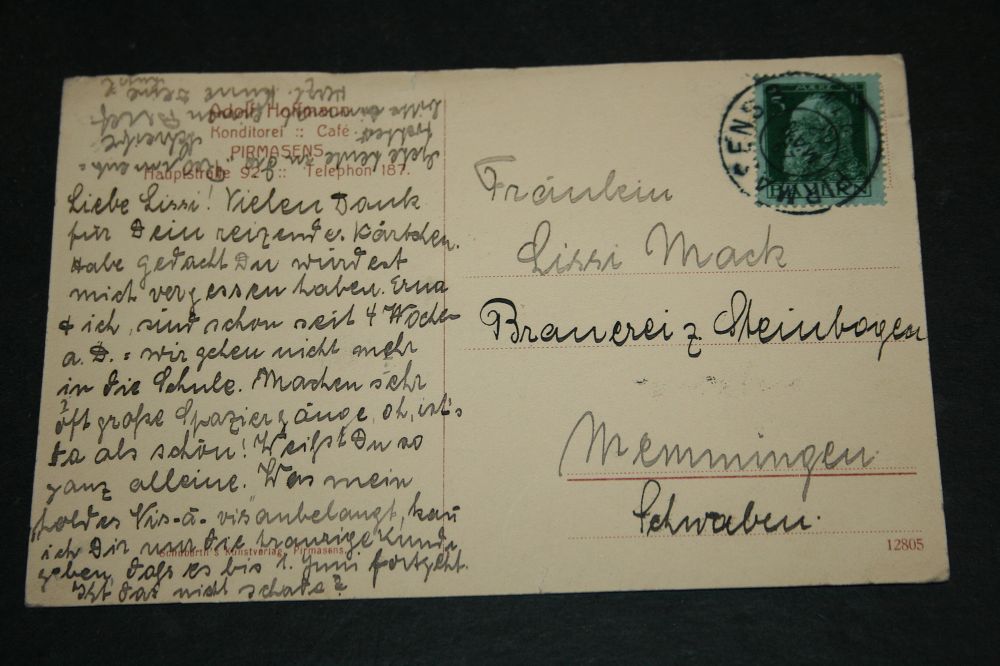 Adolf Hoffmann
Konditorei :: Café
PIRMASENS
Hauptstraße 92 :: Telephon 187.
Liebe Lissi! Vielen Dank
für Dein reizendes Kärtchen.
Habe gedacht Du würdest
mich vergessen haben. Erna
& ich, sind schon seit 4 Wochen
a. D. = wir gehen nicht mehr
in die Schule. Machen sehr
oft große Spaziergänge, oh, ist's
da als schön! Weißt Du so
ganz alleine. Was mein
holdes Vis-à-vis anbelangt, kan
ich Dir nur die traurige Kunde
geben, dass es bis 1. Juni fortgeht.
Ist das nicht schade?
Schubarth's Kunstverlag, Pirmasens.
Fräulein
Lissi Mack
Brauerei z Steinbogen
Memmingen
Schwaben.
12805
5
BAYERN